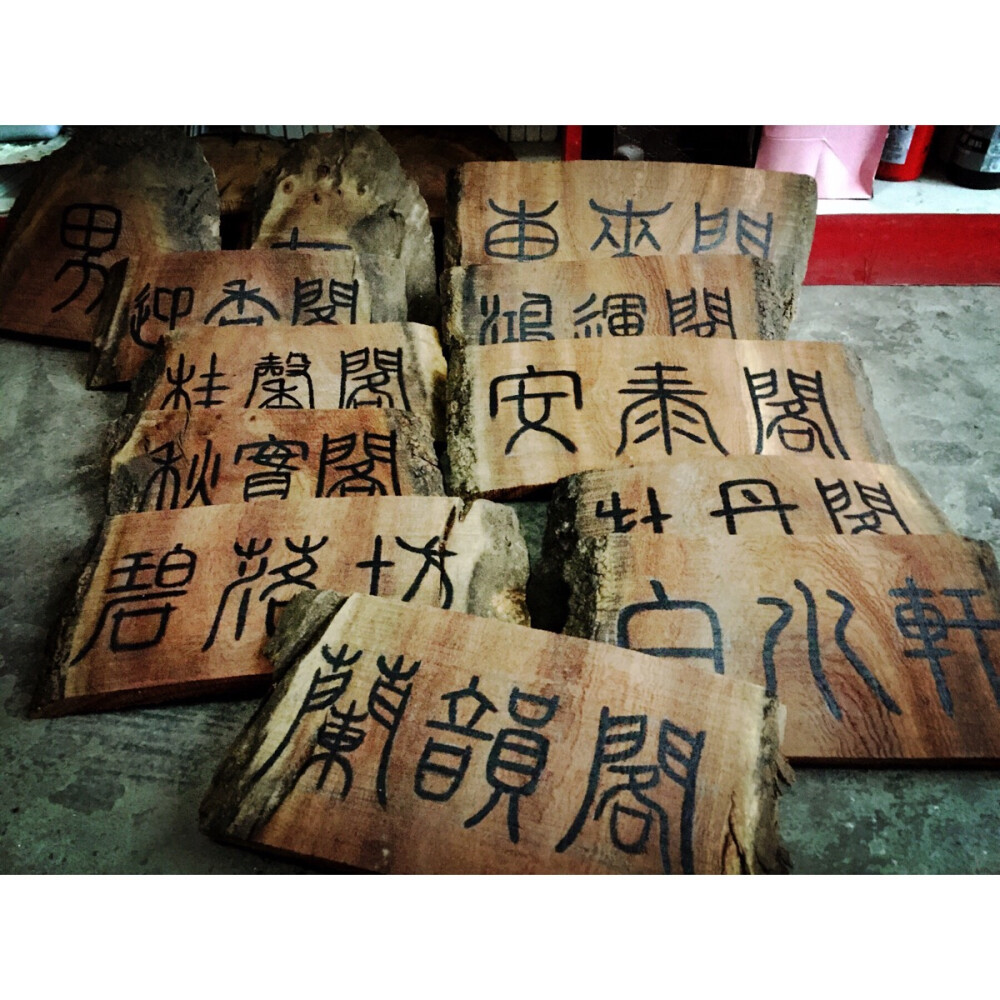 男
迎香閣
桂馨閣
秋實閣
碧落坊
蘭韻閣
東來閣
鴻運閣
安泰閣
牡丹閣
白水軒